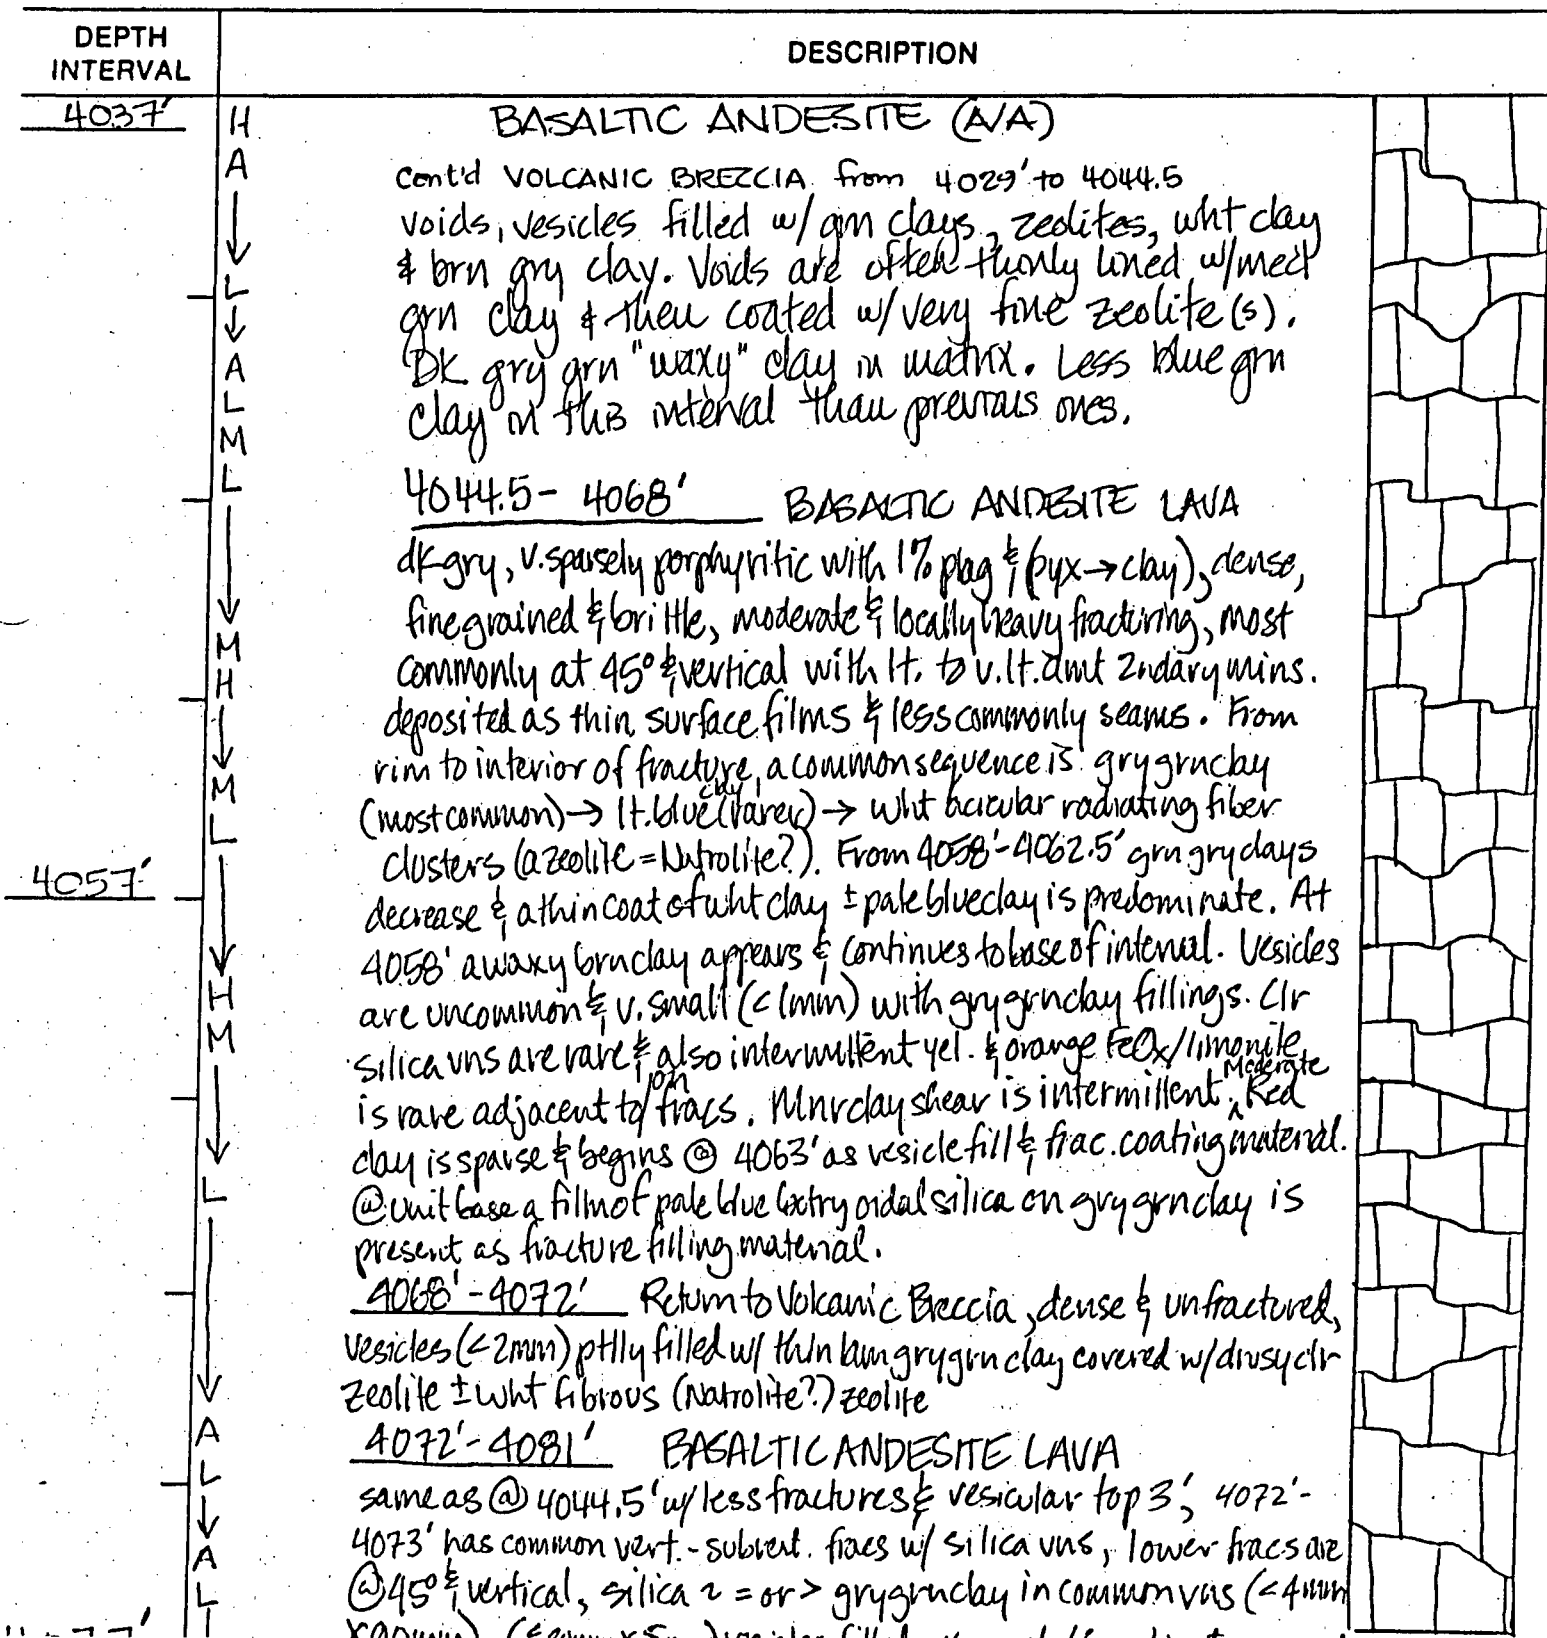 DEPTH INTERVAL
DESCRIPTION
4037'
H
A
L
A
L
M
L
M
H
M
L
4057'
H
M
L
A
L
A
L
BASALTIC ANDESITE (A/A)
Cont'd VOLCANIC BREZCIA from 4029' to 4044.5
voids, vesicles filled w/ grn clays, zeolites, wht clay
& brn gry clay. Voids are often thinly lined w/med
grn clay & then coated w/ very fine zeolite(s).
DK gry grn "waxy" clay in matrix. Less blue grn
clay in this interval than previous ones.
4044.5 - 4068' BASALTIC ANDESITE LAVA
dk gry, v. sparsely porphyritic with 1% plag & (pyx→clay), dense,
fine grained & brittle, moderate & locally heavy fracturing, most
commonly at 45° & vertical with lt. to v. lt. amt 2ndary mins.
deposited as thin surface films & less commonly seams. From
rim to interior of fracture, a common sequence is gry grn clay
(most common) → lt. blue clay (rarer) → wht acicular radiating fiber
clusters (a zeolite = Natrolite?). From 4058'-4062.5' grn gry clays
decrease & a thin coat of wht clay ± pale blue clay is predominate. At
4058' a waxy brn clay appears & continues to base of interval. Vesicles
are uncommon & v. small (<1mm) with gry grn clay fillings. Clr
silica vns are rare & also intermittent yel. & orange FeOx/limonite
is rare adjacent to/on fracs. Mnr clay shear is intermittent. Moderate Red
clay is sparse & begins @ 4063' as vesicle fill & frac. coating material.
@ unit base a film of pale blue botryoidal silica on gry grn clay is
present as fracture filling material.
4068'-4072' Return to Volcanic Breccia, dense & unfractured,
vesicles (<2mm) ptlly filled w/ thin lam gry grn clay covered w/ drusy clr
zeolite ± wht fibrous (Natrolite?) zeolite
4072'-4081' BASALTIC ANDESITE LAVA
same as @ 4044.5' w/ less fractures & vesicular top 3', 4072'-
4073' has common vert. - subvert. fracs w/ silica vns, lower fracs are
@ 45° & vertical, silica ~ = or > gry grn clay in common vns (<4mm